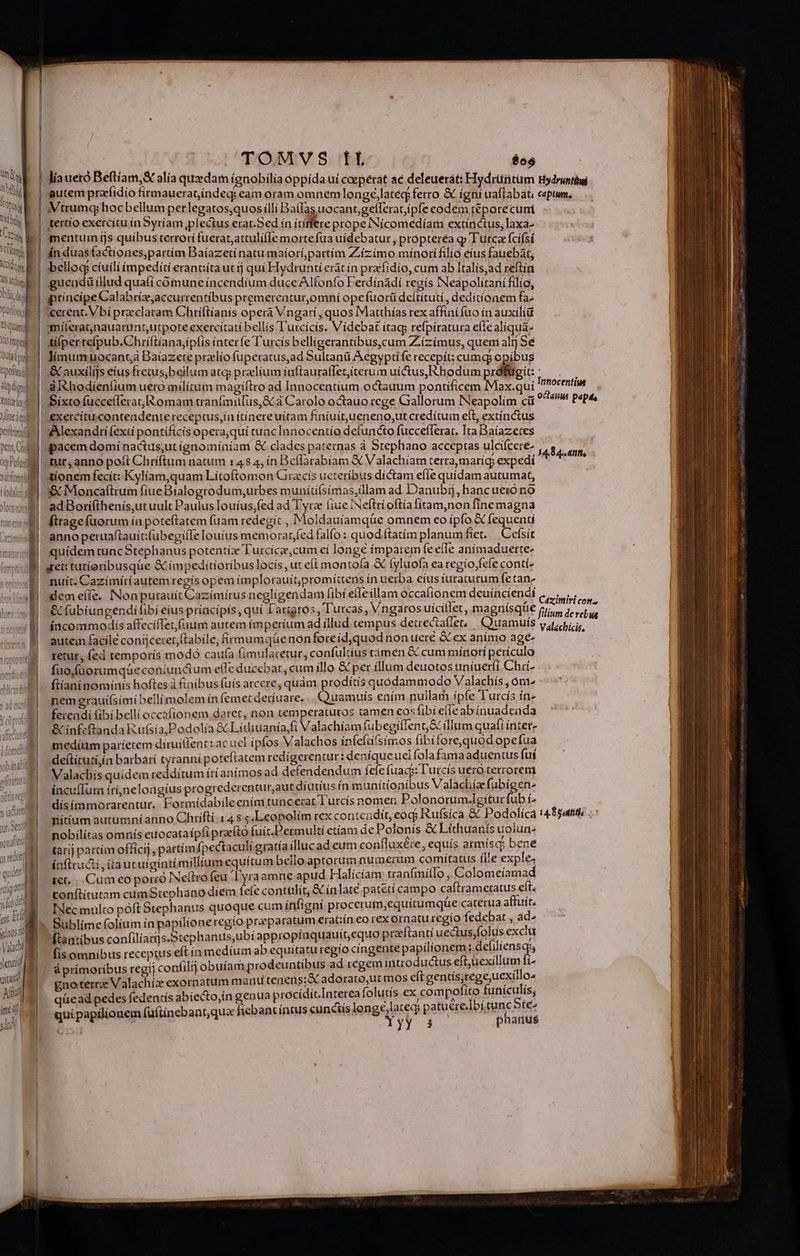 TOMVS II. 809
lia uerò Bestiam, & alia quædam ignobilia oppida ui cœperat ac deleuerat: Hydruntum
Hydruntum captum.
autem præsidio firmauerat, indeq; eam oram omnem longe, lateq; ferro & igni uastabat.
Vtrumq; hoc bellum per legatos, quos illi Bassas uocant, gesserat, ipse eodem tẽpore cum
tertio exercitu in Syriam, plectus erat. Sed in itinere prope Nicomediam extinctus, laxa-
mentum ijs quibus terrori fuerat, attulisse morte sua uidebatur, propterea q; Turcæ scissi
in duas factiones, partim Baiazeti natu maiori, partim Zizimo minori filio eius fauebãt,
belloq; ciuili impediti erant: ita ut ij qui Hydrunti erãt in præsidio, cum ab Italis, ad restin
guendũ illud quasi cõmune incendium duce Alfonso Ferdinãdi regis Neapolitani filio,
principe Calabriæ, accurrentibus premerentur, omni ope suorũ destituti, deditionem fa-
cerent. Vbi præclaram Christianis operã Vngari, quos Matthias rex affini suo in auxiliũ
miserat, nauarunt, utpote exercitati bellis Turcicis. Videbat itaq; respiratura esse aliqua-
tisper respub. Christiana, ipsis inter se Turcis belligerantibus, cum Zizimus, quem alij Se
limum uocant, à Baiazete prælio superatus, ad Sultanũ Aegypti se recepit: cumq; opibus
& auxilijs eius fretus, bellum atq; prælium instaurasset, iterum uictus, Rhodum profugit:
à Rhodiensium uero militum magistro ad Innocentium octauum pontificem Max. qui
Innocentius octauus papa.
Sixto successerat, Romam transmissus, & à Carolo octauo rege Gallorum Neapolim cũ
exercitu contendente receptus, in itinere uitam finiuit, ueneno, ut creditum est, extinctus
Alexandri sexti pontificis opera, qui tunc Innocentio defuncto successerat. Ita Baiazetes
pacem domi nactus, ut ignominiam & clades paternas à Stephano acceptas ulciscere-
1484. anno.
tur, anno post Christum natum 1484, in Bessarabiam & Valachiam terra, mariq; expedi
tionem fecit: Kyliam, quam Litostomon Græcis ueteribus dictam esse quidam autumat,
& Moncastrum siue Bialogrodum, urbes munitissimas, illam ad Danubij, hanc uero nõ
ad Boristhenis, ut uult Paulus Iouius, sed ad Tyræ siue Nestri ostia sitam, non sine magna
strage suorum in potestatem suam redegit, Moldauiamqúe omnem eo ipso & sequenti
anno peruastauit: subegisse Iouius memorat, sed falso: quod statim planum fiet. Cessit
quidem tunc Stephanus potentiæ Turcicæ, cum ei longe imparem se esse animaduerte-
ret: tutioribusqúe & impeditioribus locis, ut est montosa & syluosa ea regio, sese conti-
nuit. Cazimiri autem regis opem implorauit, promittens in uerba eius iuraturum se tan-
dem esse. Non putauit Cazimirus negligendam sibi esse illam occasionem deuinciendi
Cazimiri con-silium de rebus Valachicis.
& subiungendi sibi eius principis, qui Tartaros, Turcas, Vngaros uicisset, magnisqúe
incommodis affecisset, suum autem imperium ad illud tempus detrectasset. Quamuis
autem facile conijceret, stabile, firmumqúe non fore id, quod non uere & ex animo age-
retur, sed temporis modò causa simularetur, consultius tamen & cum minori periculo
suo, suorumqúe coniunctum esse ducebat, cum illo & per illum deuotos uniuersi Chri-
stiani nominis hostes à finibus suis arcere, quàm proditis quodammodo Valachis, om-
nem grauissimi belli molem in semet deriuare. Quamuis enim nullam ipse Turcis in-
ferendi sibi belli occasionem daret, non temperaturos tamen eos sibi esse ab inuadenda
& infestanda Russia, Podolia & Lithuania, si Valachiam subegissent, & illum quasi inter-
medium parietem diruissent: ac uel ipsos Valachos infestissimos sibi fore, quod ope sua
destituti, in barbari tyranni potestatem redigerentur: denique uel sola fama aduentus sui
Valachis quidem redditum iri animos ad defendendum sese suaq;: Turcis uero terrorem
incussum iri, ne longius progrederentur, aut diutius in munitionibus Valachiæ subigen-
dis immorarentur. Formidabile enim tunc erat Turcis nomen Polonorum. Igitur sub i-
nitium autumni anno Christi 1485. Leopolim rex contendit, eoq; Russica & Podolica
1485. annus.
nobilitas omnis euocata ipsi præsto fuit. Permulti etiam de Polonis & Lithuanis uolun-
tarij partim officij, partim spectaculi gratia illuc ad eum confluxére, equis armisq; bene
instructi, ita ut uiginti millium equitum bello aptorum numerum comitatus ille exple-
ret. Cum eo porrò Nestro seu Tyra amne apud Haliciam transmisso, Colomeiamad
constitutam cum Stephano diem sese contulit, & in late patẽti campo castrametatus est.
Nec multo pòst Stephanus quoque cum insigni procerum, equitumqúe caterua affuit.
Sublime solium in papilione regio præparatum erat: in eo rex ornatu regio sedebat, ad-
stantibus consiliarijs. Stephanus, ubi appropinquauit, equo præstanti uectus, solus exclu
sis omnibus receptus est in medium ab equitatu regio cingente papilionem: desiliensq;
à primoribus regij consilij obuiam prodeuntibus ad regem introductus est, uexillum si-
gno terræ Valachiæ exornatum manu tenens: & adorato, ut mos est gentis, rege, uexillo-
qúe ad pedes sedentis abiecto, in genua procidit. Interea solutis ex composito funiculis,
qui papilionem sustinebant, quæ fiebant intus cunctis longe, lateq; patuére. Ibi tunc Ste-
Yyy 3 phanus